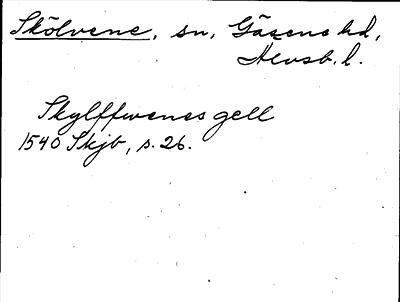 Skölvene, sn, Gäsene hd,
Älvsb. l.
Skylffwenes gell
1540 Skjb, s. 26.